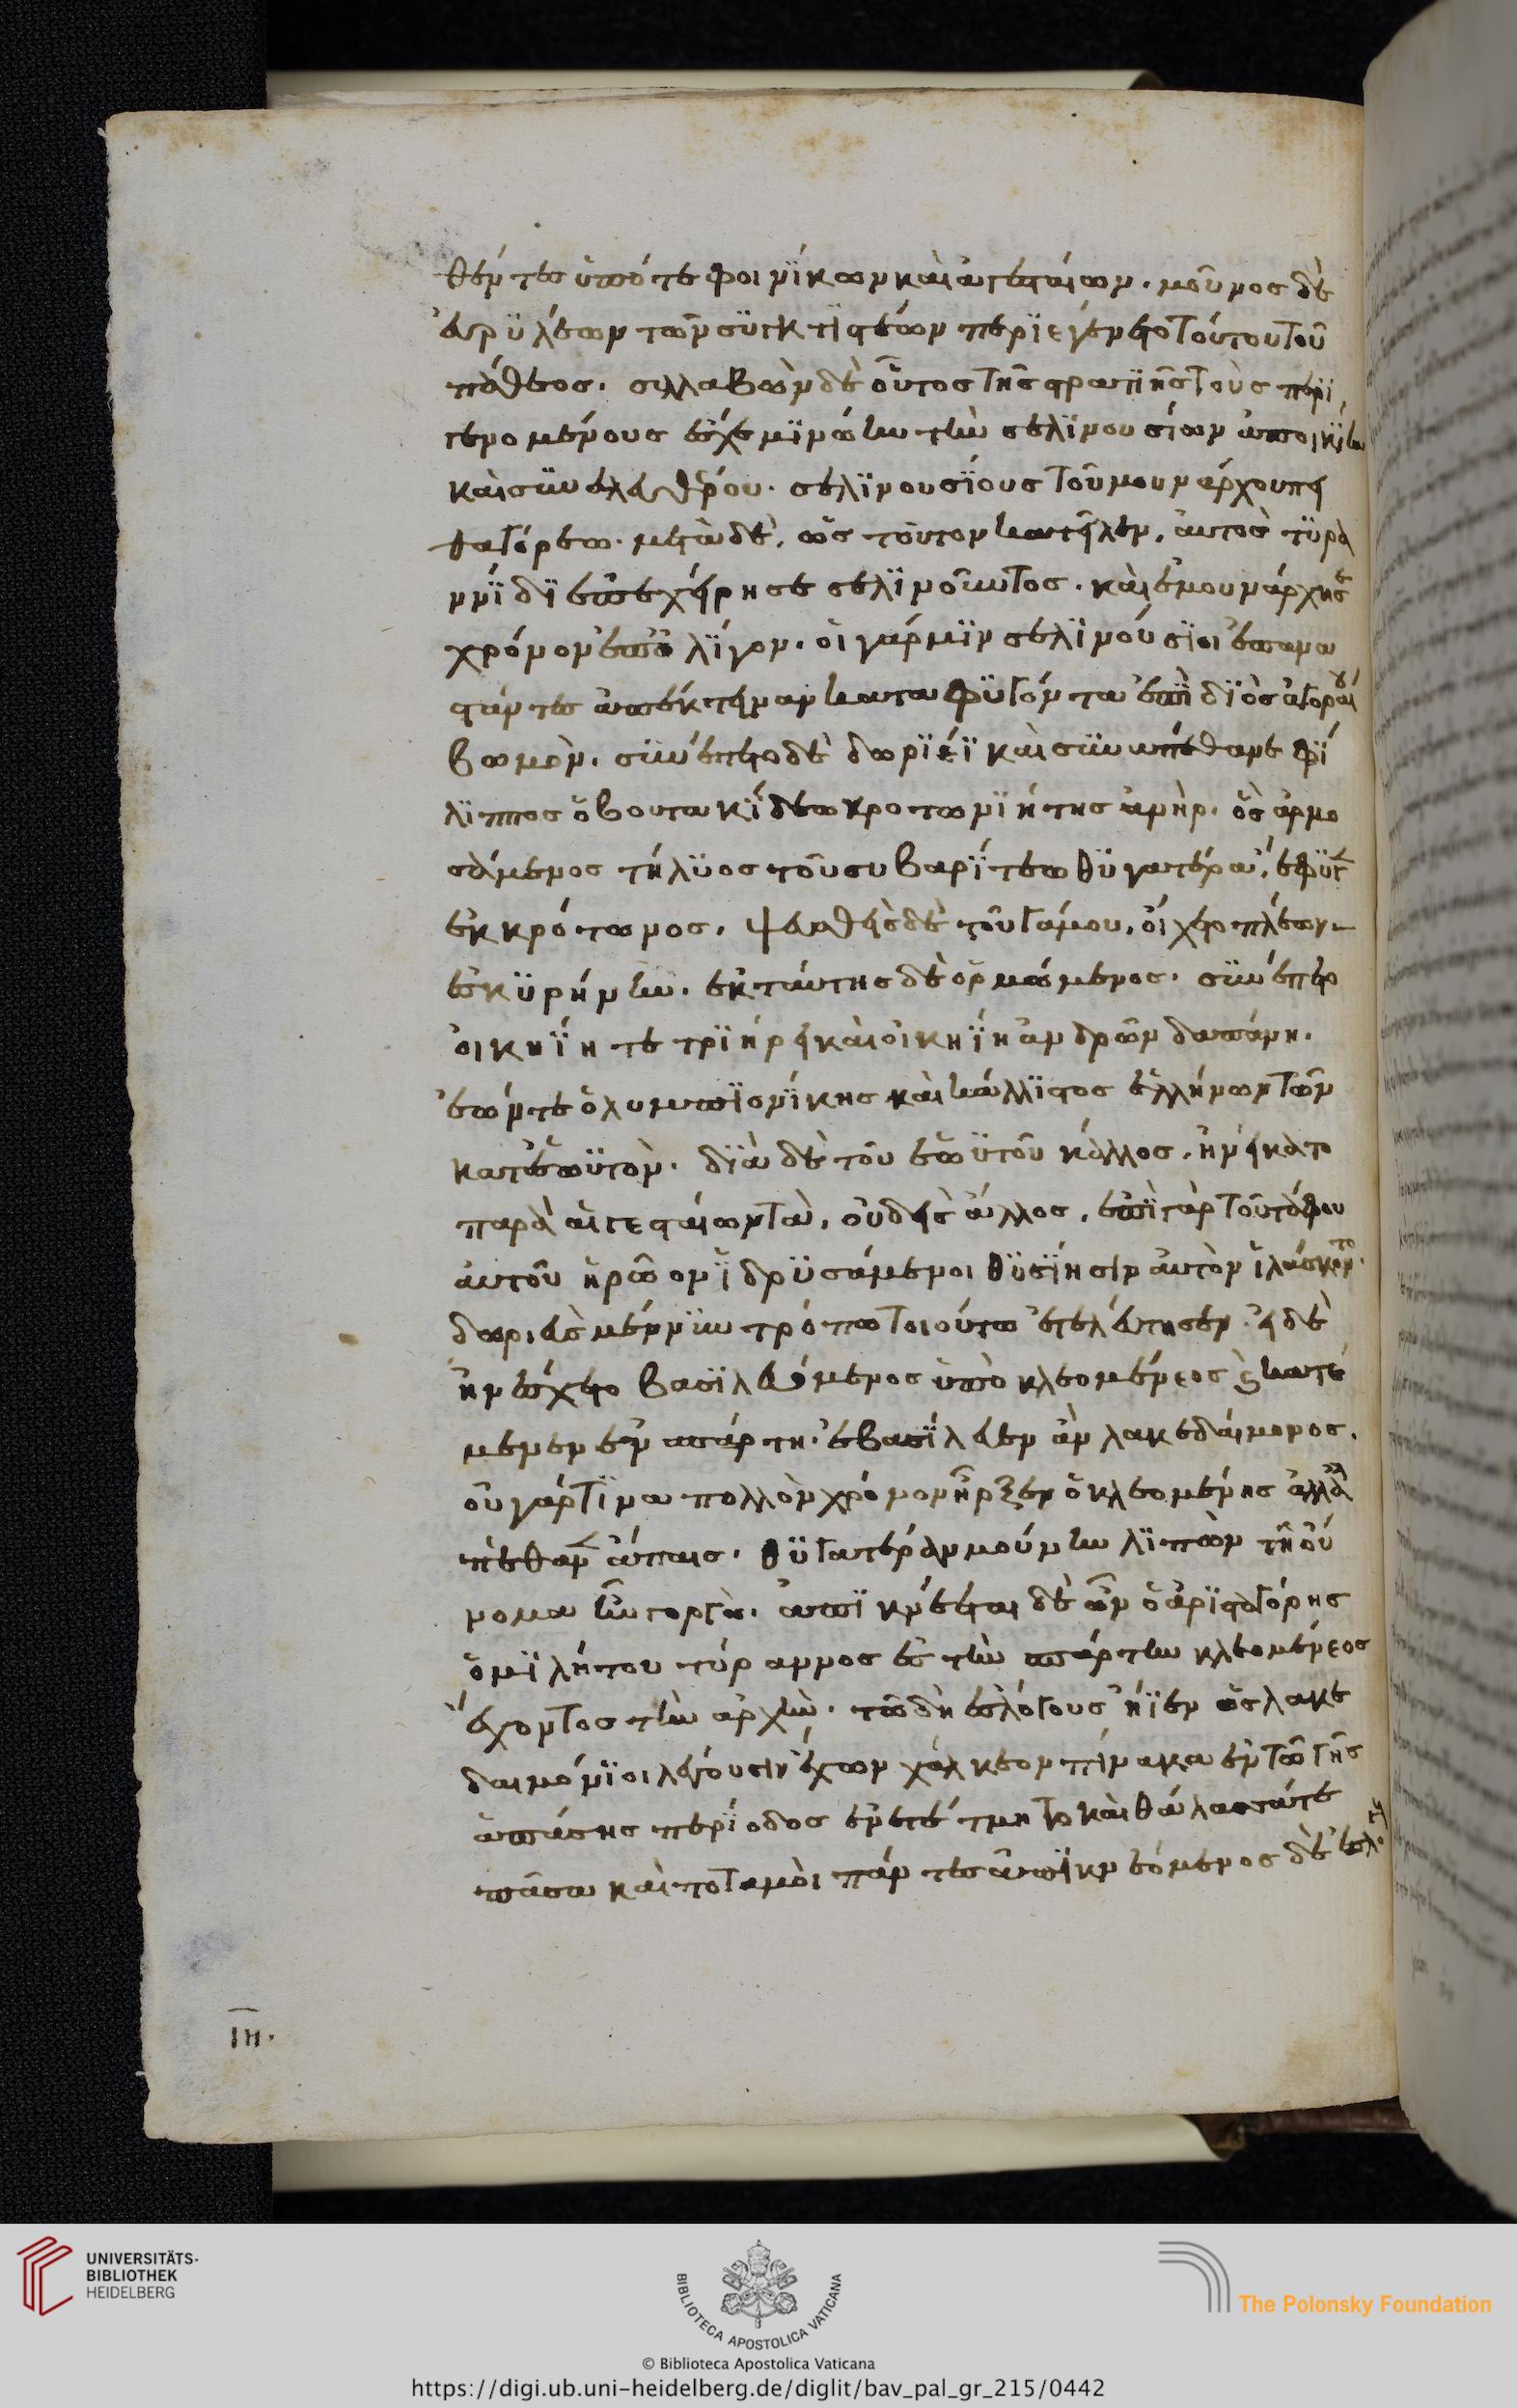 θέντες ὑπό τε φοινίκων καὶ αἰγεσταίων. μοῦνος δὲ
εὐρυλέων τῶν συγκτιστέων περιεγένετο τούτου τοῦ
πάθεος. συλλαβὼν δὲ οὗτος τῆς στρατιῆς τοὺς περι
γενομένους εἷχε μινώην τὴν σελινουσίων ἀποικίην
καὶ συνελευθέρου. σελινουσίους τοῦ μουνάρχου πει
θαγόρεω. μετὰ δὲ, ὡς τοῦτον κατεῖλεν, αὐτὸς τυρα
ννίδι ἐπεχείρησε σελινοῦντος. καὶ ἐμουνάρχησε
χρόνον ἐπ' ὀλίγον. οἱ γάρ μιν σελινούσιοι ἐπανα
στάντες ἀπέκτειναν καταφυγόντα ἐπὶ διὸς ἀγοραίου
βωμόν. συνέσπετο δὲ δωριέϊ καὶ συναπέθανε φί
λιππος ὁ βουτακίδεω κροτωνιήτης ἀνήρ. ὃς ἁρμο
σάμενος τήλυος τοῦ συβαρίτεω θυγατέρα, ἔφυγε
ἐκ κρότωνος. ψευσθεὶς δὲ τοῦ γάμου, οἴχετο πλέων
ἐς κυρήνην. ἐκ ταύτης δὲ ὁρμώμενος. συνέσπετο
οἰκηΐη τε τριήρει καὶ οἰκηΐη ἀνδρῶν δαπάνη.
ἐών τε ὀλυμπιονίκης καὶ κάλλιστος ἑλλήνων τῶν
κατ' ἑωυτόν. διὰ δὲ τοῦ ἑωυτοῦ κάλλος, ἠνείκατο
παρὰ αἰγεσταίων τὰ, οὐδεὶς ἄλλος, ἐπὶ γὰρ τοῦ τάφου
αὐτοῦ ἡρῶον ἱδρυσάμενοι θυσίησιν αὐτὸν ἱλάσκοντο.
δωριεὺς μέν νυν τρόπω τοιούτω ἐτελεύτησεν. εἰ δὲ
ἠνέσχετο βασιλευόμενος ὑπὸ κλεομένεος καὶ κατέ
μενεν ἐν σπάρτη. ἐβασίλευεν ἂν λακεδαίμονος.
οὐ γάρ τινα πολλὸν χρόνον ἦρξεν ὁ κλεομένης ἀλλ' ἀ
πέθανε ἄπαις. θυγατέραν μούνην λιπὼν τῆ οὔ
νομα ἦν γοργώ. ἀπικνέεται δὲ ὦν ὁ ἀρισταγόρης
ὁ μιλήτου τύραννος ἐς τὴν σπάρτην κλεομένεος
ἔχοντος τὴν ἀρχὴν. τῶ δὴ ἐς λόγους ἤϊεν ὡς λακε
δαιμόνιοι λέγουσιν ἔχων χάλκεον πίνακα ἐν τῶ γῆς
ἁπάσης περίοδος ἐνετέτμητο καὶ θάλασσά τε
πᾶσα καὶ ποταμοὶ πάντες ἀπικνεόμενος δὲ ἐς λό
ιη.
UNIVERSITÄTS-
BIBLIOTHEK
HEIDELBERG
BIBLIOTECA APOSTOLICA VATICANA
The Polonsky Foundation
© Biblioteca Apostolica Vaticana
https://digi.ub.uni-heidelberg.de/diglit/bav_pal_gr_215/0442